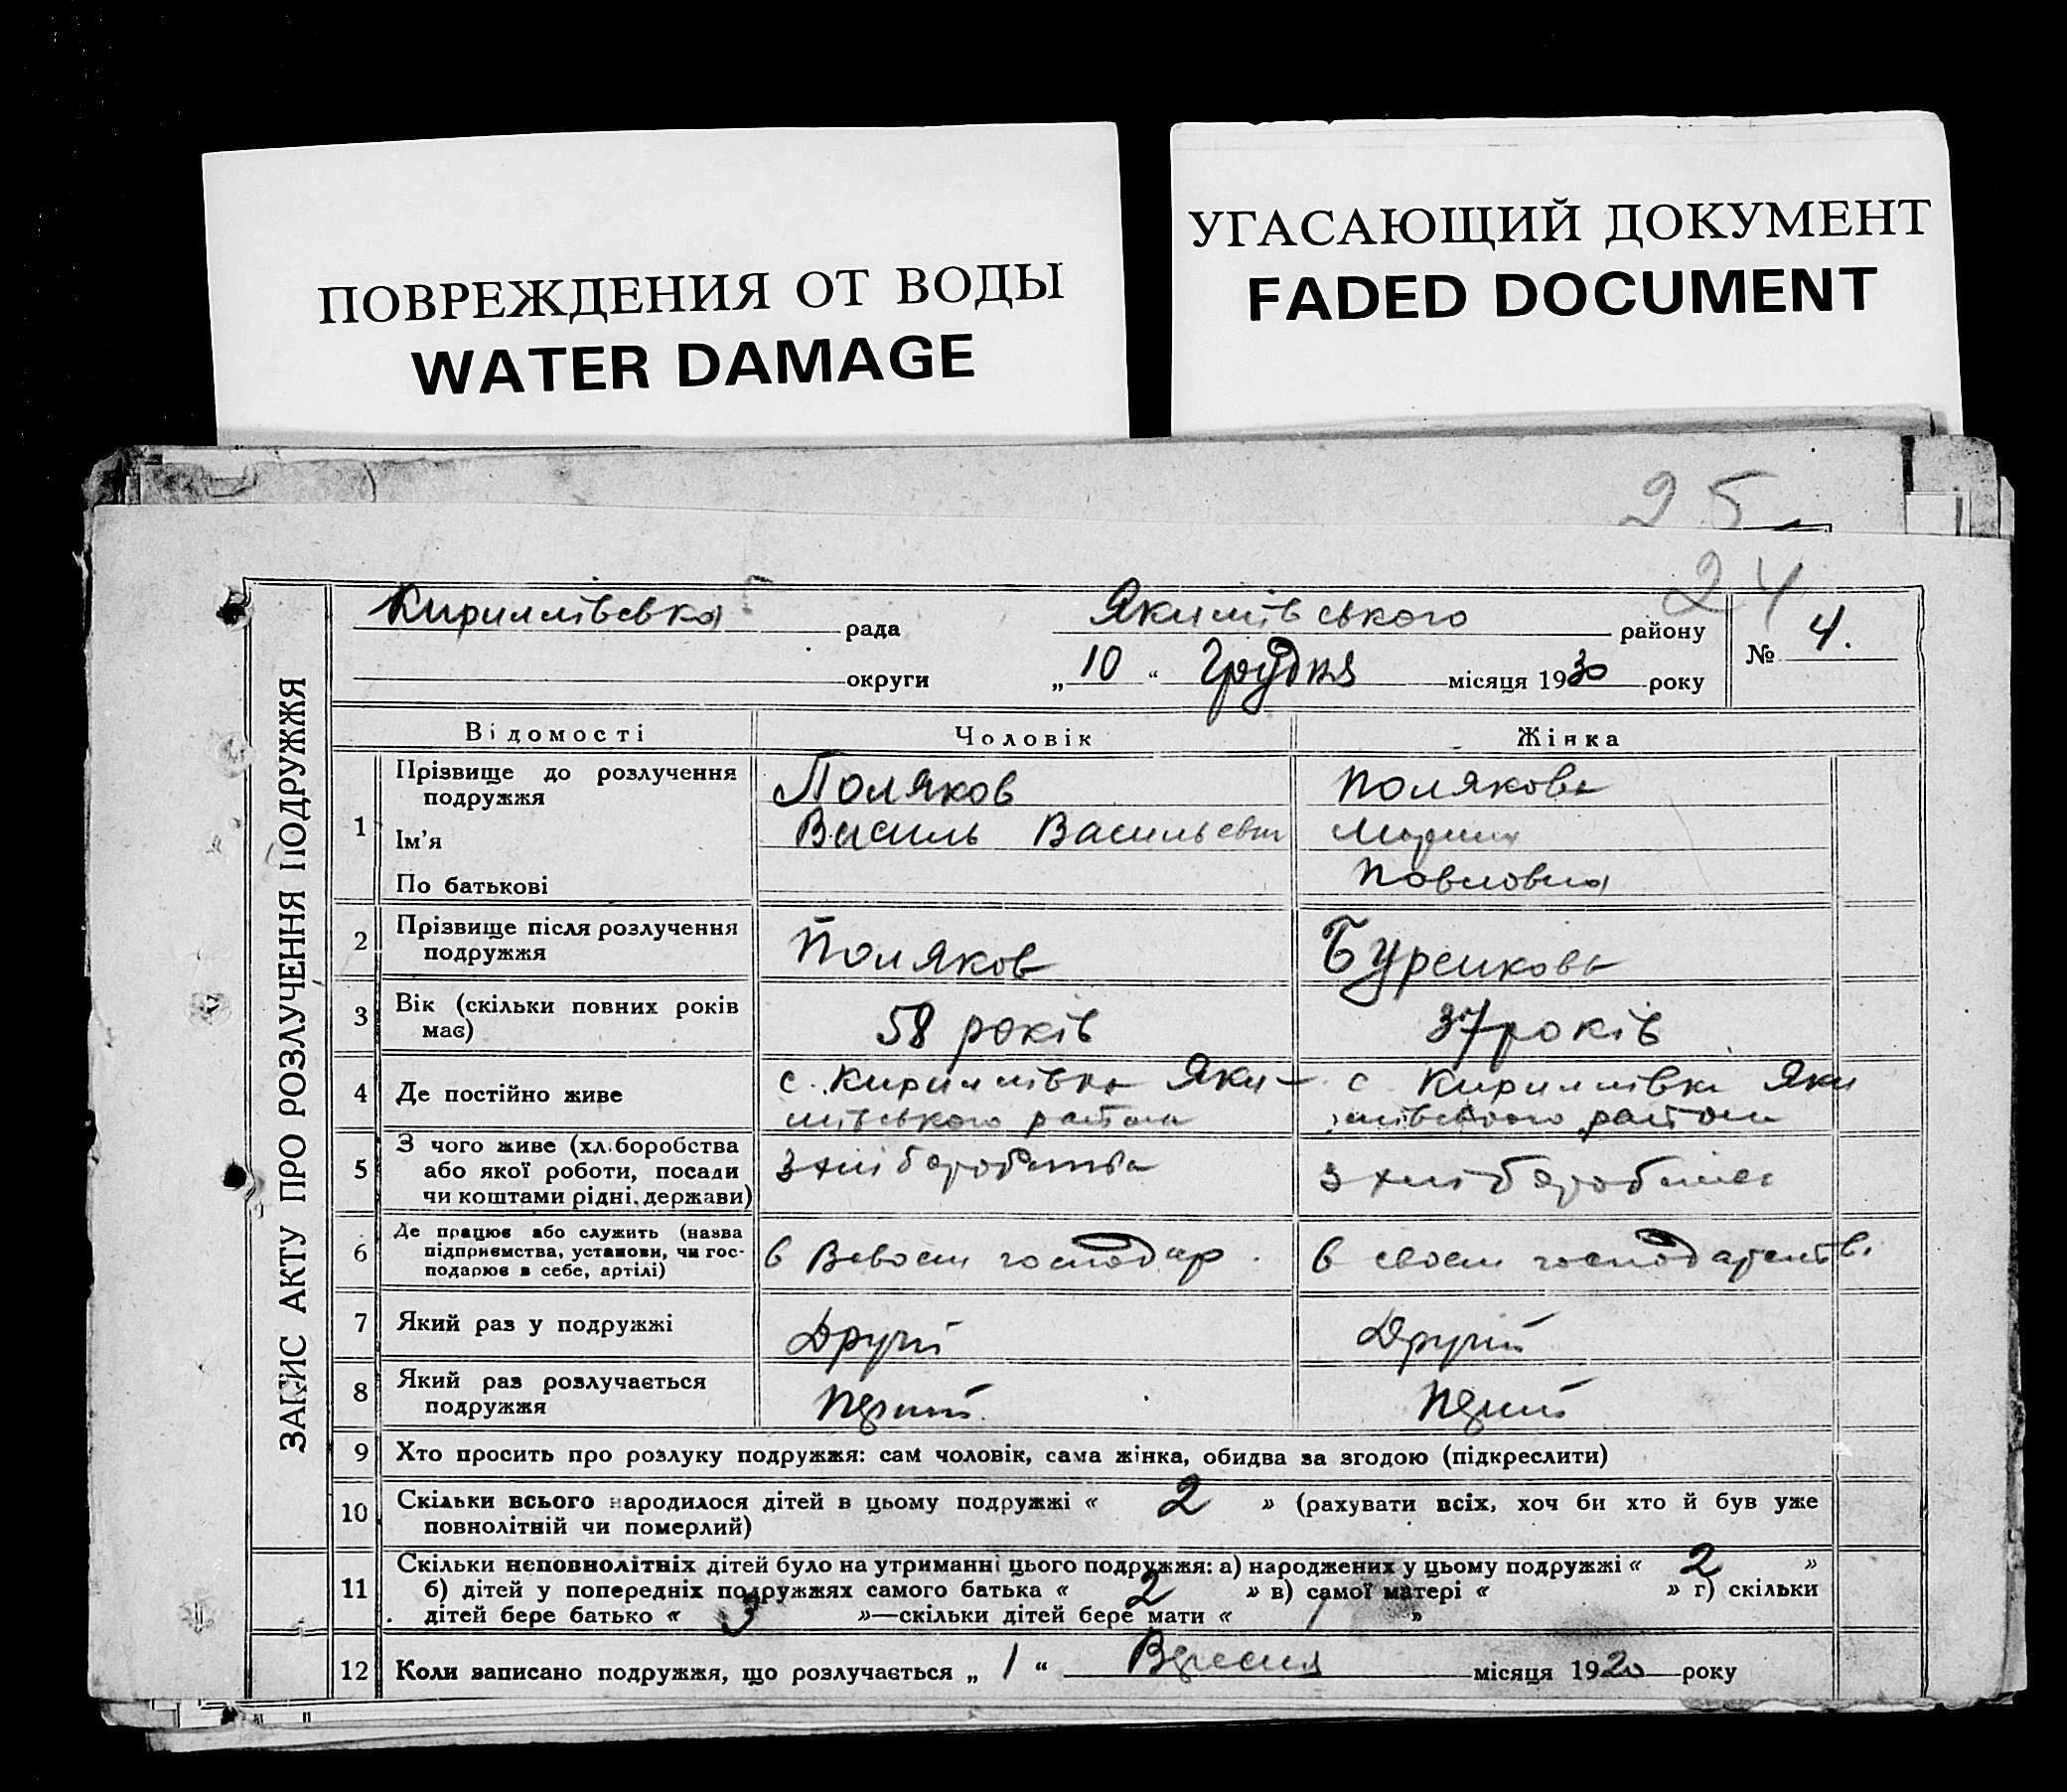 ПОВРЕЖДЕНИЯ ОТ ВОДЫ
WATER DAMAGE
УГАСАЮЩИЙ ДОКУМЕНТ
FADED DOCUMENT
25
24
ЗАПИС АКТУ ПРО РОЗЛУЧЕННЯ ПОДРУЖЖЯ
Кириллівська рада Якимівського району
округи „10“ Грудня місяця 1930 року
№ 4.
Відомості Чоловік Жінка
1 Прізвище до розлучення Поляков Полякова
подружжя
Ім'я Василь Васильевич Мария
По батькові Павловна
2 Прізвище після розлучення Поляков
подружжя
3 Вік (скільки повних років 58 років 37 років
має)
4 Де постійно живе с. Кириллівка Яки- с Кириллівка Яки
мівського района мівського района
5 З чого живе (хліборобства з хліборобства з хліборобства
або якої роботи, посади
чи коштами рідні, держави)
6 Де працює або служить (назва в своем господар. в своем господарств.
підприємства, установи, чи гос-
подарює в себе, артілі)
7 Який раз у подружжі Другий Другий
8 Який раз розлучається Перший Перший
подружжя
9 Хто просить про розлуку подружжя: сам чоловік, сама жінка, обидва за згодою (підкреслити)
10 Скільки всього народилося дітей в цьому подружжі « 2 » (рахувати всіх, хоч би хто й був уже
повнолітній чи померлий)
11 Скільки неповнолітніх дітей було на утриманні цього подружжя: а) народжених у цьому подружжі « 2 »
б) дітей у попередніх подружжях самого батька « 2 » в) самої матері « » г) скільки
дітей бере батько « 3 »—скільки дітей бере мати « 1 »
12 Коли записано подружжя, що розлучається „ 1 “ Вересня місяця 1920 року